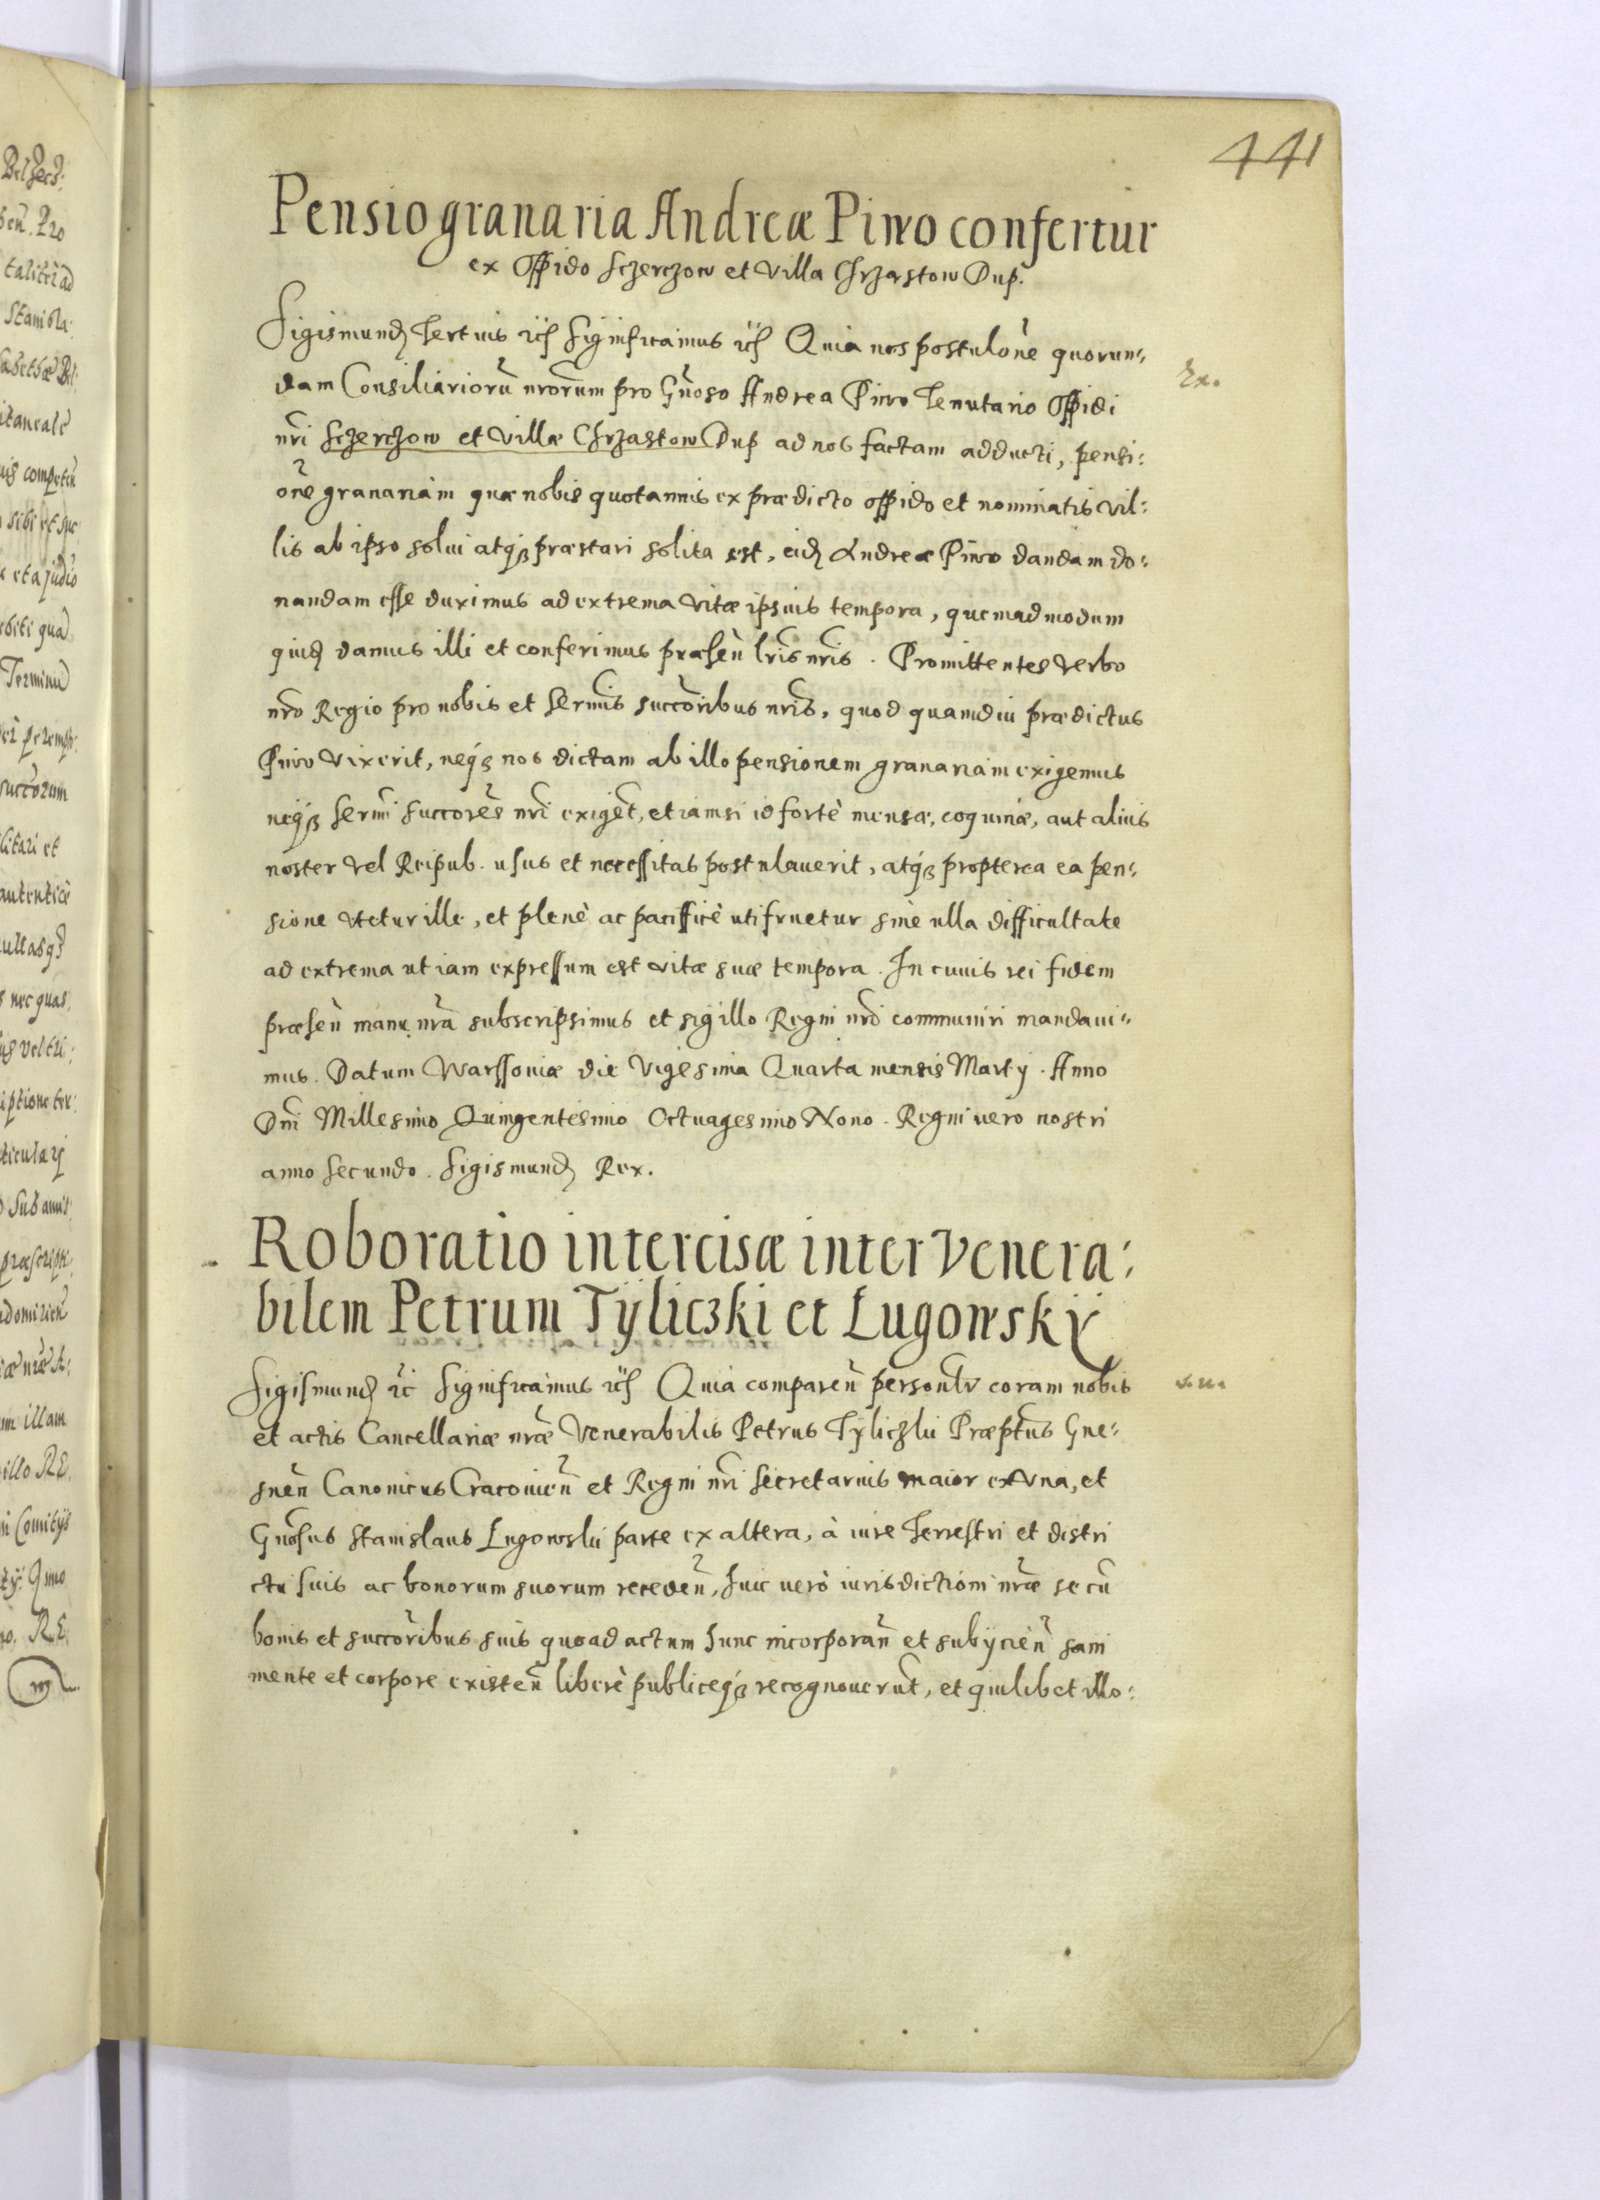 441
Pensio granaria Andreæ Piwo confertur
ex Oppido Sczerczow et Villa Chrzastow Dup.
Sigismund9 Tertius etc Significamus etc Quia nos postulōne quorun-
dam Consiliariorū nrorum pro Gnoso Andrea Piwo Tenutario Oppidi
nri Sczerczow et Villæ Chrzastow Dup ad nos factam adducti, pensi:
onē granariam quæ nobis quotannis ex prædicto oppido et nominatis vil:
lis ab ipso solui atq3 præstari solita est, eid Andreæ Piwo dandam do:
nandam esse duximus ad extrema vitæ ipsius tempora, quemadmodum
quid damus illi et conferimus præsen lris nris. Promittentes verbo
nro Regio pro nobis et Sermis succōribus nris, quod quamdiu prædictus
Piwo vixerit, neq3 nos dictam ab illo pensionem granariam exigemus
neq3 Sermi succores nri exiget, etiamsi id fortè mensæ, coquinæ, aut alius
noster vel Reipub. usus et necessitas postulauerit, atq3 propterea ea pen-
sione vtetur ille, et plenè ac pacificè utifruetur sine ulla difficultate
ad extrema ut iam expressum est vitæ suæ tempora. In cuius rei fidem
præsen manu nra subscripsimus et sigillo Regni nri communiri mandaui-
mus. Datum Warssoviæ die Vigesima Quarta mensis Martij. Anno
Dni Millesimo Quingentesimo Octuagesimo Nono. Regni uero nostri
anno Secundo. Sigismund9 Rex.
Roboratio intercisæ inter Venera:
bilem Petrum Tÿliczki et Lugowskÿ
Sigismund9 etc Significamus etc Quia comparen personlr coram nobis
et actis Cancellariæ nræ Venerabilis Petrus Tÿliczki Præptus Gne-
snen Canonicus Cracovien et Regni nri Secretarius maior ex vna, et
Gnosus Stanislaus Lugowski parte ex altera, à iure Terrestri et distri
ctu suis ac bonorum suorum receden, huic verò iurisdictioni nræ se cū
bonis et succōribus suis quoad actum hunc incorporan et subijcien sani
mente et corpore existen liberè publiceq3 recognouerunt, et quilibet illo: